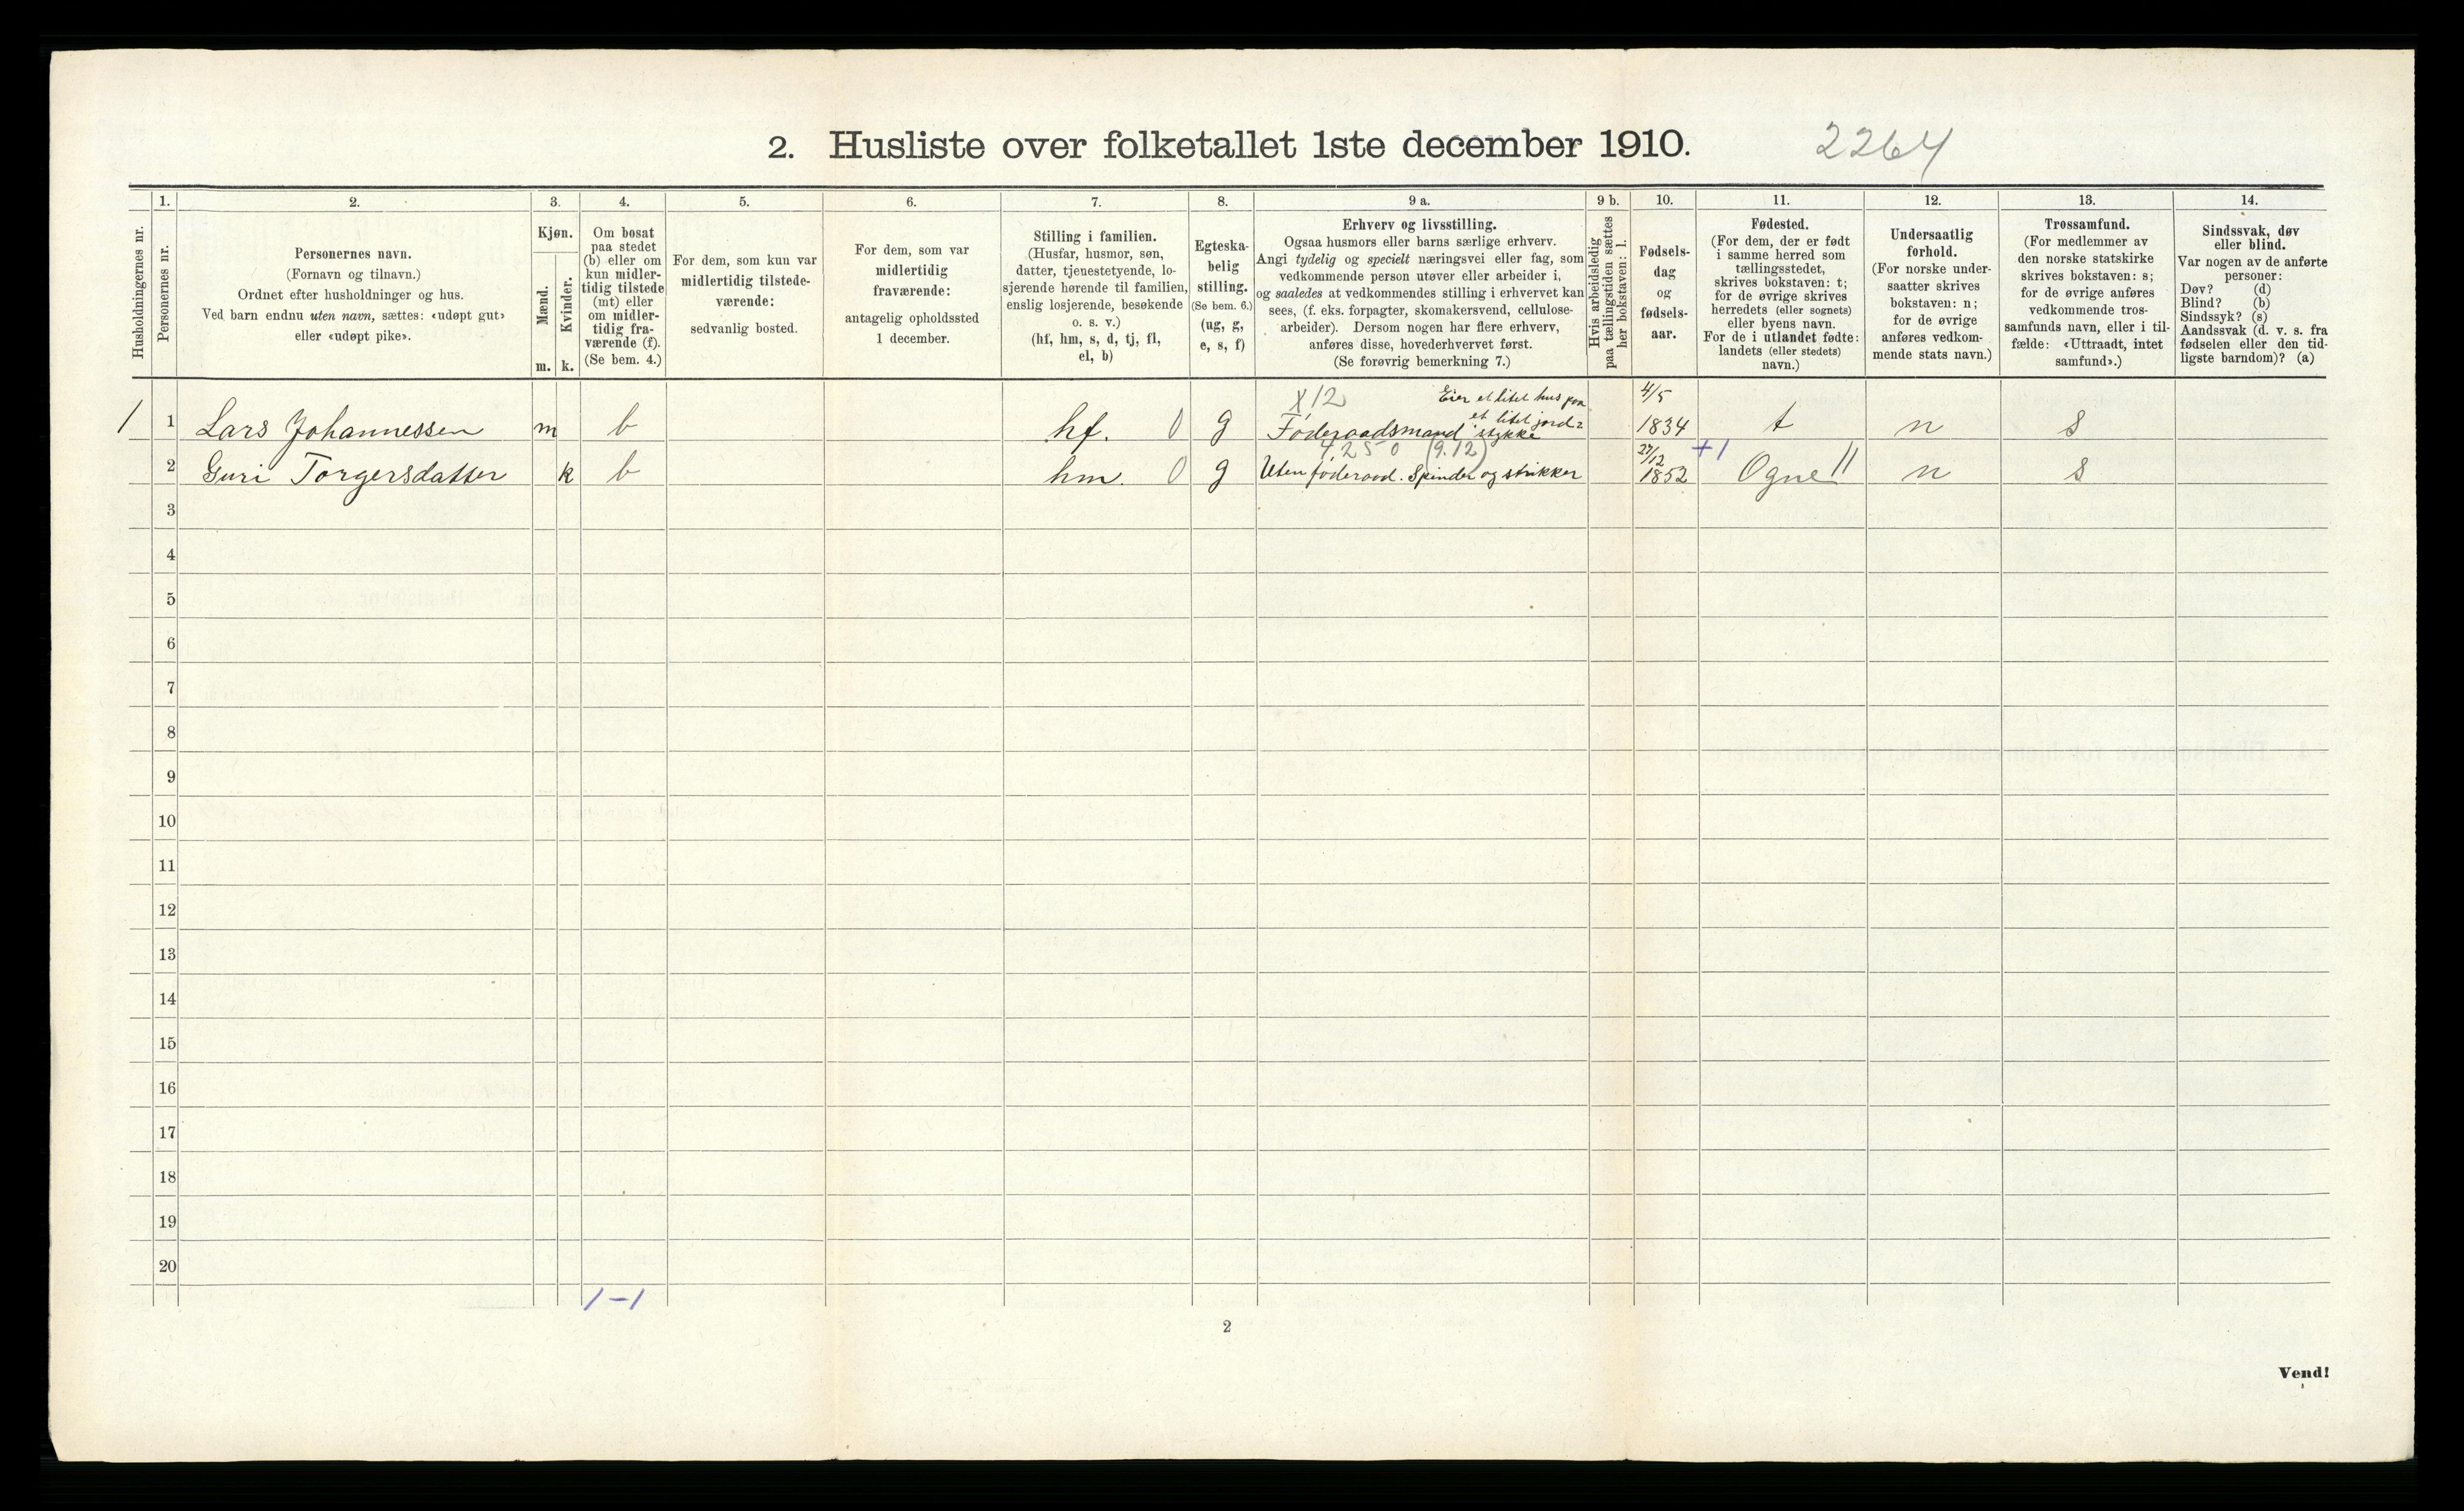 2. Husliste over folketallet 1ste december 1910. 2264
Husholdningernes nr.
1.
Personernes nr.
2.
Personernes navn.
(Fornavn og tilnavn.)
Ordnet efter husholdninger og hus.
Ved barn endnu uten navn, sættes: «udøpt gut»
eller «udøpt pike».
3.
Kjøn.
Mænd.
Kvinder.
m. k.
4.
Om bosat
paa stedet
(b) eller om
kun midler-
tidig tilstede
(mt) eller
om midler-
tidig fra-
værende (f).
(Se bem. 4.)
5.
For dem, som kun var
midlertidig tilstede-
værende:
sedvanlig bosted.
6.
For dem, som var
midlertidig
fraværende:
antagelig opholdssted
1 december.
7.
Stilling i familien.
(Husfar, husmor, søn,
datter, tjenestetyende, lo-
sjerende hørende til familien,
enslig losjerende, besøkende
o. s. v.)
(hf, hm, s, d, tj, fl,
el, b)
8.
Egteska-
belig
stilling.
(Se bem. 6.)
(ug, g,
e, s, f)
9 a.
Erhverv og livsstilling.
Ogsaa husmors eller barns særlige erhverv.
Angi tydelig og specielt næringsvei eller fag, som
vedkommende person utøver eller arbeider i,
og saaledes at vedkommendes stilling i erhvervet kan
sees, (f. eks. forpagter, skomakersvend, cellulose-
arbeider). Dersom nogen har flere erhverv,
anføres disse, hovederhvervet først.
(Se forøvrig bemerkning 7.)
9 b.
Hvis arbeidsledig
paa tællingstiden sættes
her bokstaven: l.
10.
Fødsels-
dag
og
fødsels-
aar.
11.
Fødested.
(For dem, der er født
i samme herred som
tællingsstedet,
skrives bokstaven: t;
for de øvrige skrives
herredets (eller sognets)
eller byens navn.
For de i utlandet fødte:
landets (eller stedets)
navn.)
12.
Undersaatlig
forhold.
(For norske under-
saatter skrives
bokstaven: n;
for de øvrige
anføres vedkom-
mende stats navn.)
13.
Trossamfund.
(For medlemmer av
den norske statskirke
skrives bokstaven: s;
for de øvrige anføres
vedkommende tros-
samfunds navn, eller i til-
fælde: «Uttraadt, intet
samfund».)
14.
Sindssvak, døv
eller blind.
Var nogen av de anførte
personer:
Døv? (d)
Blind? (b)
Sindssyk? (s)
Aandssvak (d. v. s. fra
fødselen eller den tid-
ligste barndom)? (a)
X12 Eier et litet hus paa 4/5
et litet jord-
1 1 Lars Johannessen m b hf. 0 g Føderaadsmand stykke 1834 t n s
4.250 (9.12) 27/12 +1
2 Guri Torgersdatter k b hm. 0 g Uten føderaad. Spinder og strikker 1852 Ogne 11 n s
3
4
5
6
7
8
9
10
11
12
13
14
15
16
17
18
19
20
1-1
2
Vend!